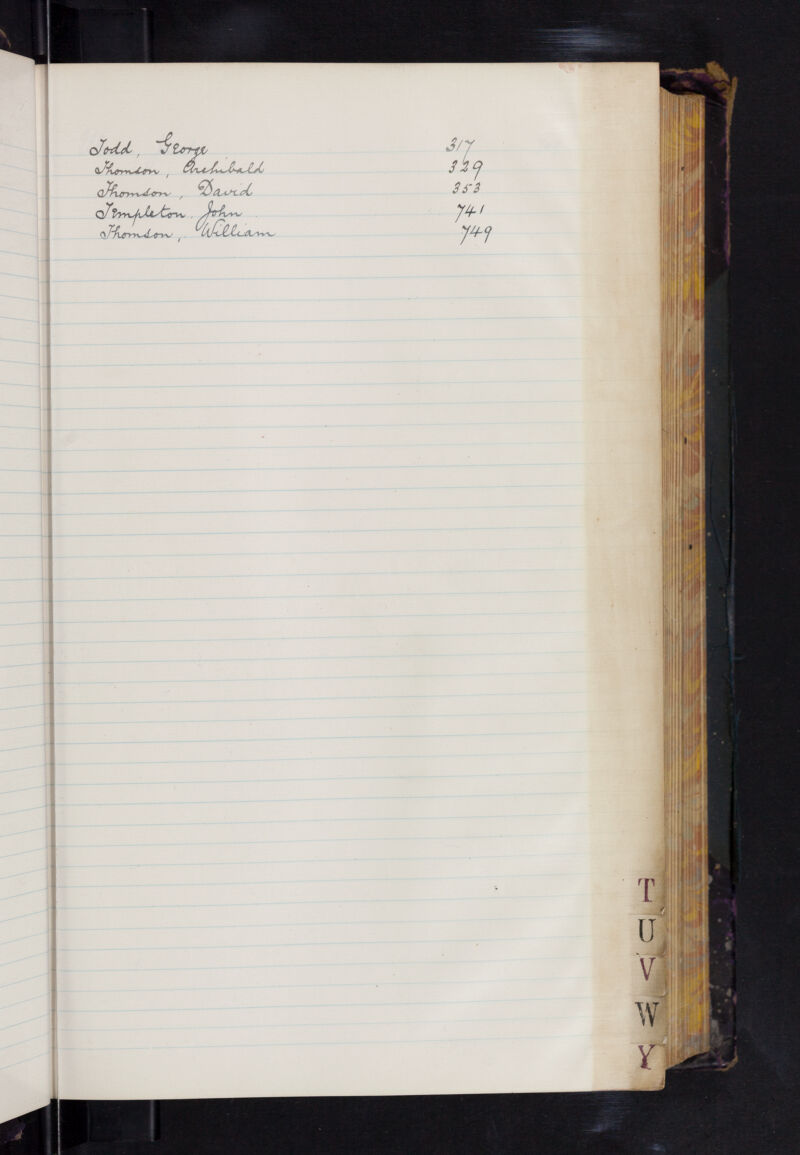 Todd, George 317
Thomson, Archibald 329
Thomson, David 353
Templeton John 741
Thomson, William 749
T
U
V
W
Y